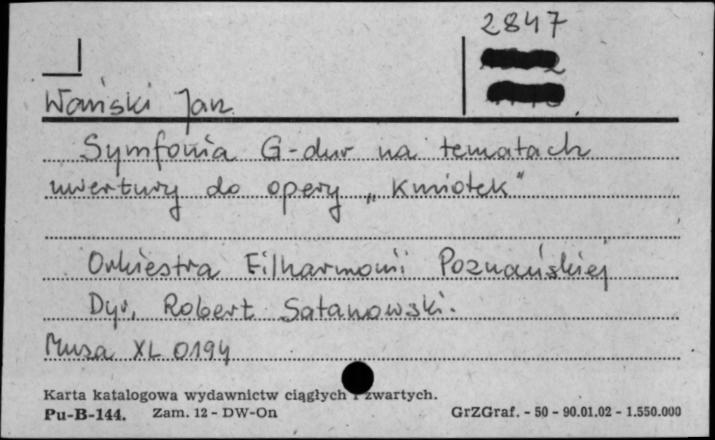 2847
Wański Jan
Symfonia G-dur na tematach
uwertury do opery „Kmiotek"
Orkiestra Filharmonii Poznańskiej
Dyr. Robert Satanowski.
Muza XL 0194
Karta katalogowa wydawnictw ciągłych i zwartych.
Pu-B-144. Zam. 12 - DW-On GrZGraf. - 50 - 90.01.02 - 1.550.000